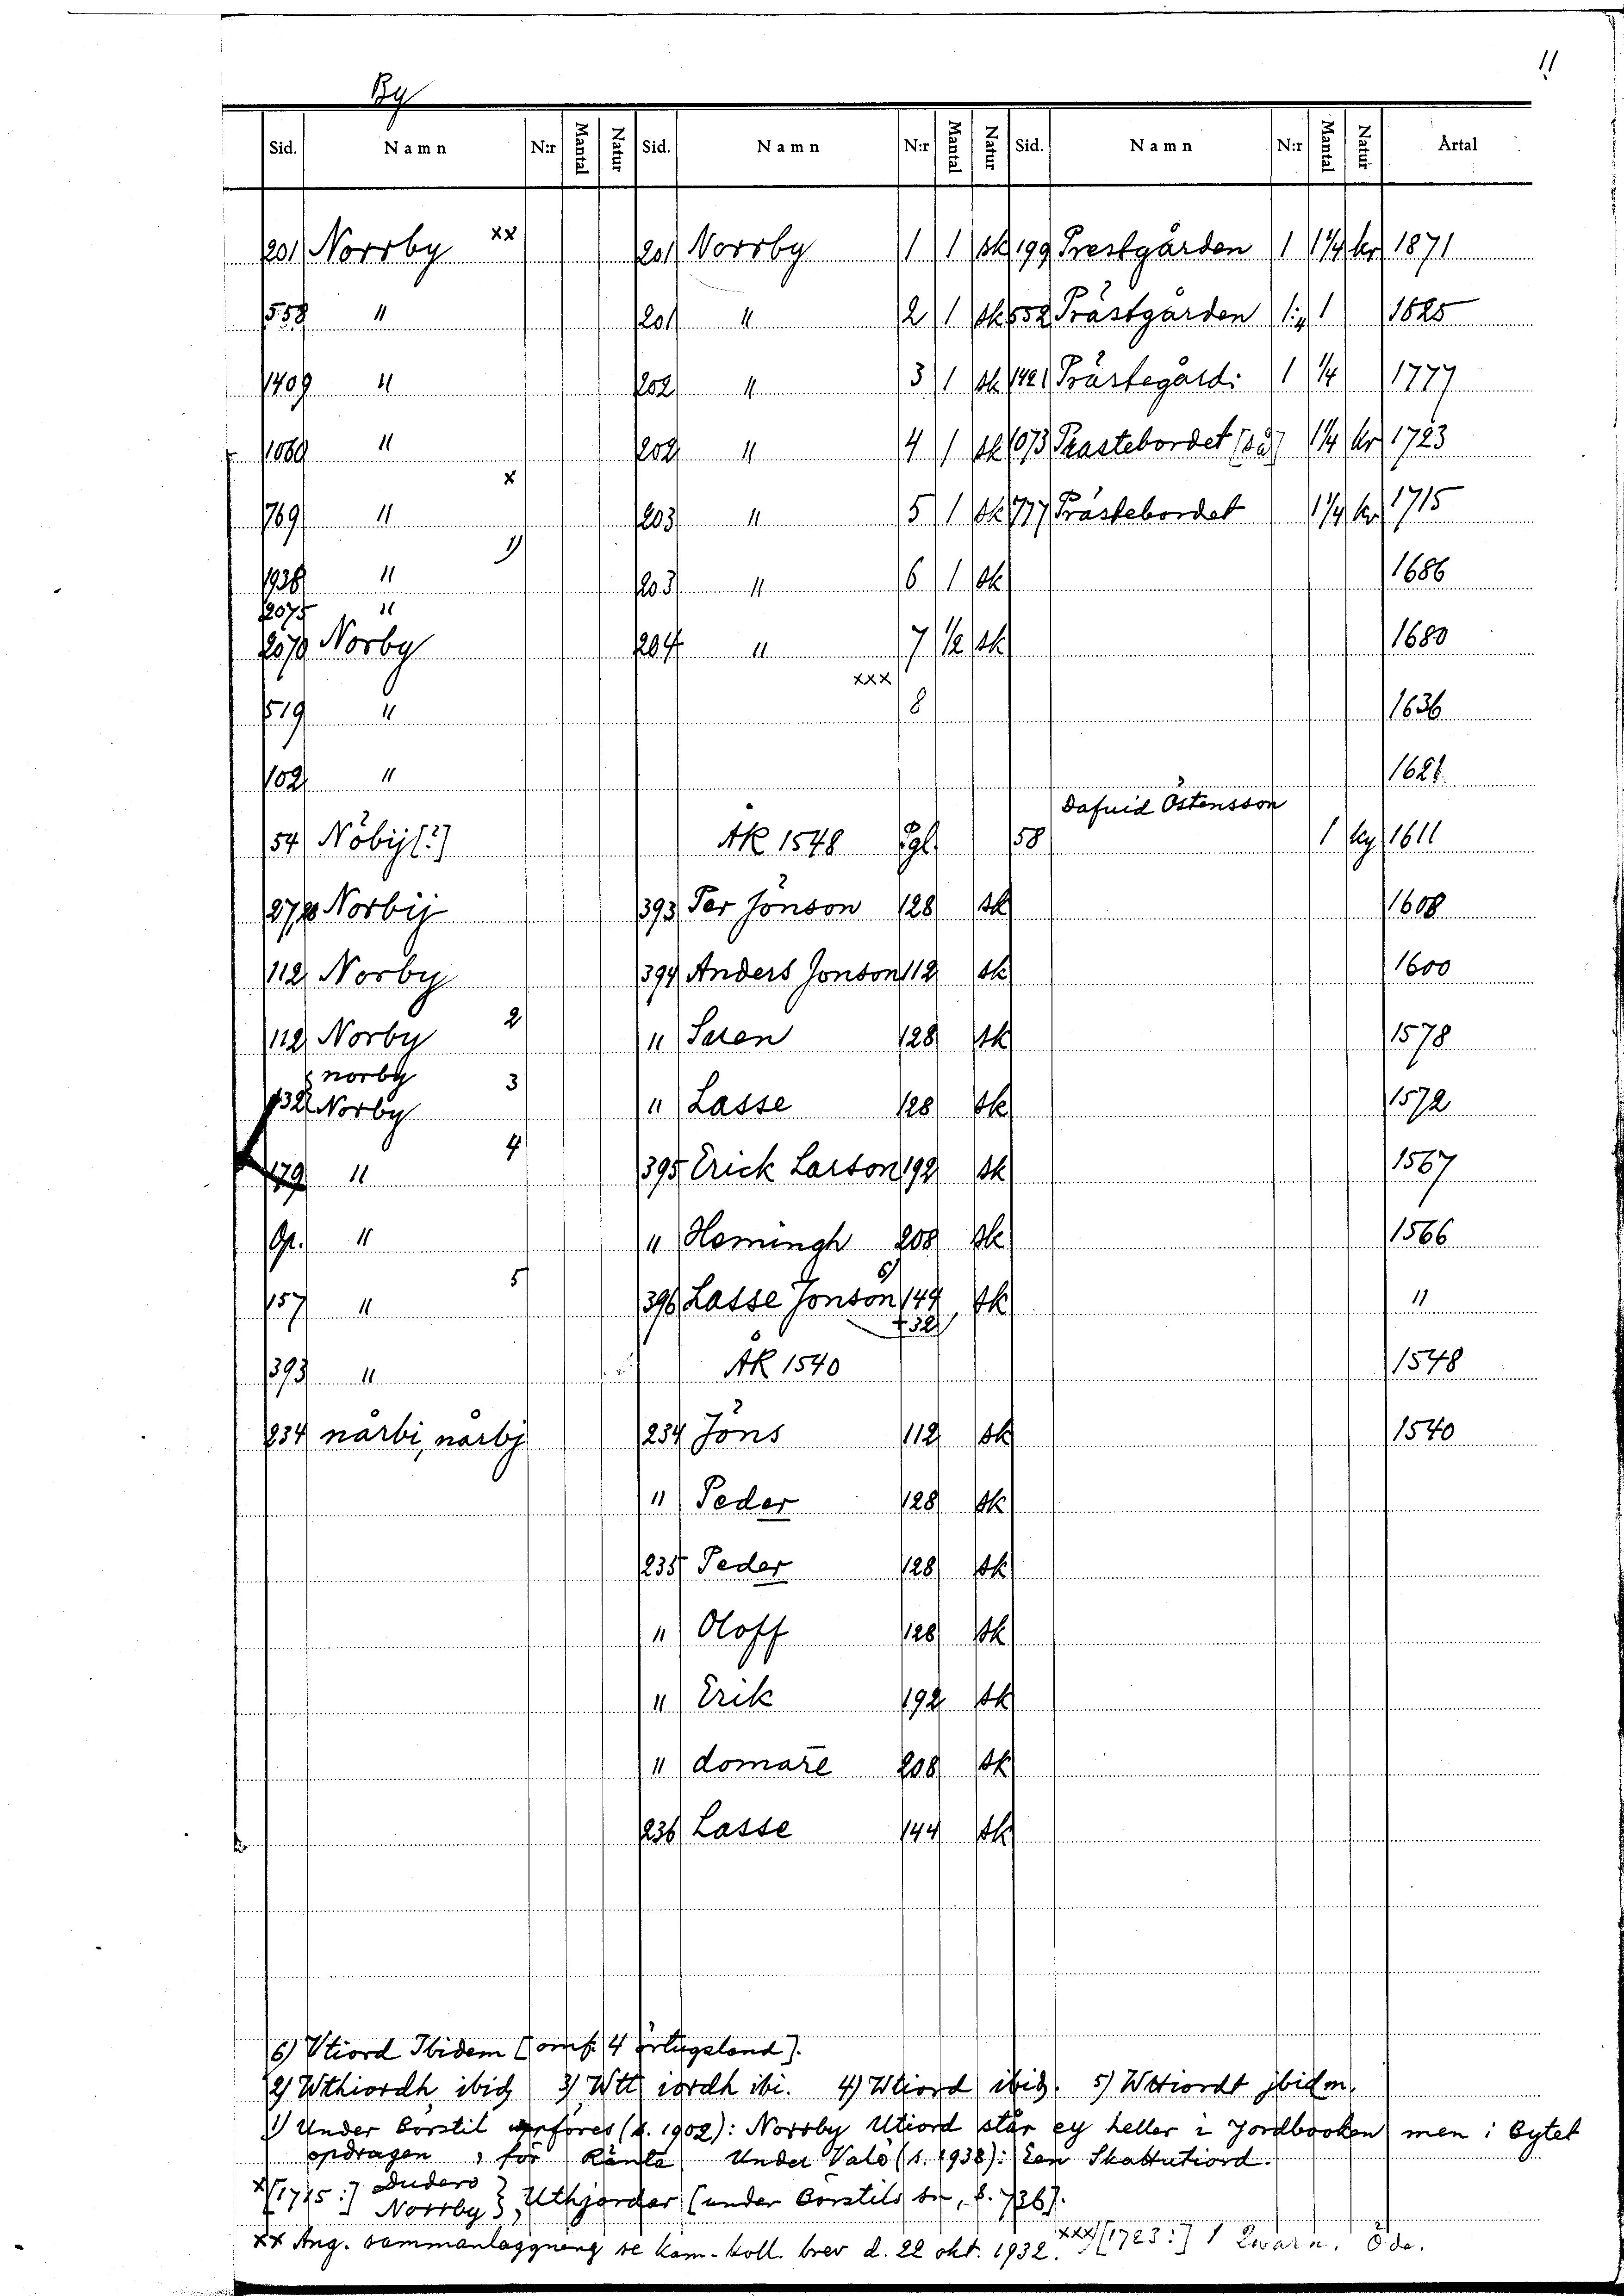 11
By
Sid. Namn N:r Mantal Natur Sid. Namn N:r Mantal Natur Sid. Namn N:r Mantal Natur Årtal
201 Norrby xx 201 Norrby 1 1 sk 199 Prestgården 1 1 1/4 kr 1871
558 " 201 " 2 1 sk 552 Prästgården 1:4 1 1825
1409 " 202 " 3 1 sk 1421 Prästegård: 1 1/4 1777
1060 " 202 " 4 1 sk 1073 Prastebordet [så] 1 1/4 kr 1723
769 " x 203 " 5 1 sk 777 Prästebordet 1 1/4 kr 1715
1938 " 1) 203 " 6 1 sk 1686
2075 "
2070 Norby 204 " 7 1/2 sk 1680
519 " xxx 8 1636
102 " 1621
Dafuid Östensson
54 Nöbij [?] ÅK 1548 Pgl. 58 1 ky 1611
27,28 Norbij 393 Per Jönson 128 sk 1608
112 Norby 394 Anders Jonson 112 sk 1600
112 Norby 2 " Suen 128 sk 1578
norby
132 Norby 3 " Lasse 128 sk 1572
179 " 4 395 Erick Larson 192 sk 1567
Gr. " " Hemingh 208 sk 1566
157 " 5 396 Lasse Jonson 6) 144 sk "
+32
393 " ÅK 1540 1548
234 nårbi, nårbj 234 Jöns 112 sk 1540
" Peder 128 sk
235 Peder 128 sk
" Oloff 128 sk
" Erik 192 sk
" domare 208 sk
236 Lasse 144 sk
6) Vtiord Ibidem [omf. 4 örtugsland].
2) Wthiordh ibid 3) Wtt iordh ibi. 4) Wtiord ibid. 5) Wttiordt jbidm.
1) Under Börstil anföres (s. 1902): Norrby Utiord står ey heller i Jordbooken men i Bytet
opdragen, för Ränta Under Valö (s. 1938): Een Skattutiord.
x) [1715:] Dudero
Norrby }, Uthjordar [under Börstils sn, s. 736].
xx Ang. sammanläggning se kam.-koll. brev d. 22 okt. 1932. xxx) [1723:] 1 Qwarn. Öde.